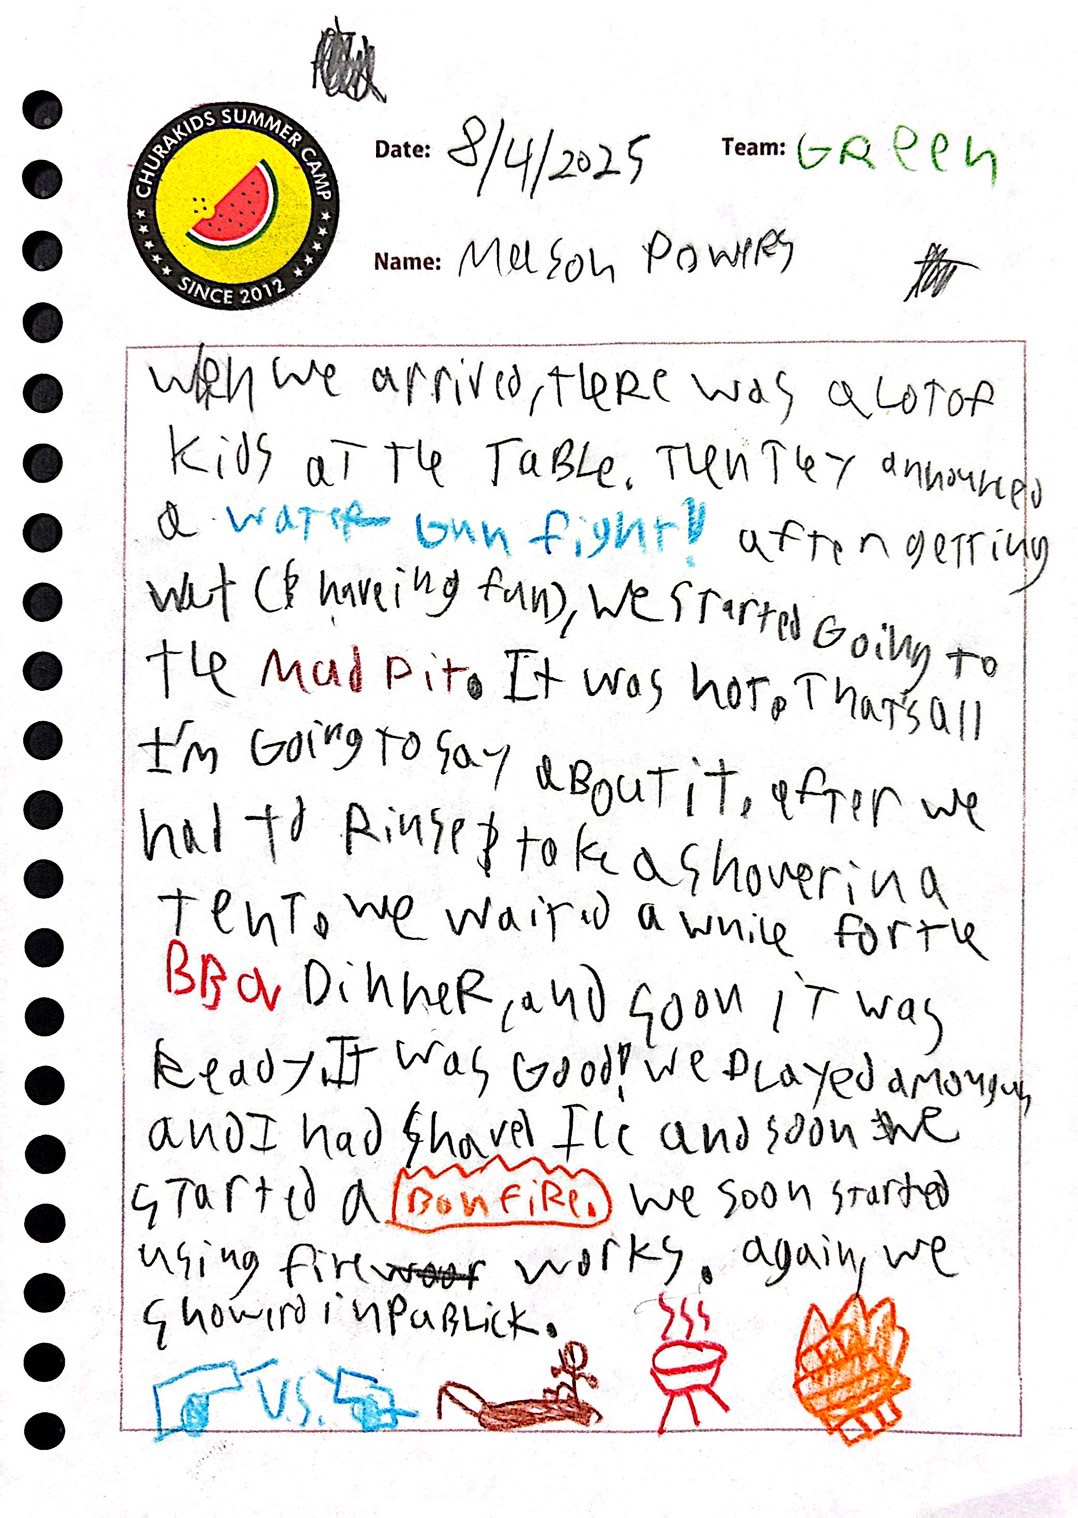 CHURAKIDS SUMMER CAMP
SINCE 2012
Date: 8/4/2025 Team: GReen
Name: Mason Powers
When we arrived, there was a lot of
kids at the Table. Then they announced
a water Gun fight! after getting
wet (& haveing fun), we started Going to
the Mud Pit. It was hot. That's all
I'm Going to say aBout it. after we
had to Rinse & take a shower in a
tent. we waited a while for the
BBQ DinneR, and soon iT was
Ready. It was Good! we played among us
and I had shaved Ice and soon we
started a BonfiRe. we soon started
using fire works. again, we
showerd in PuBlick.
V.S.